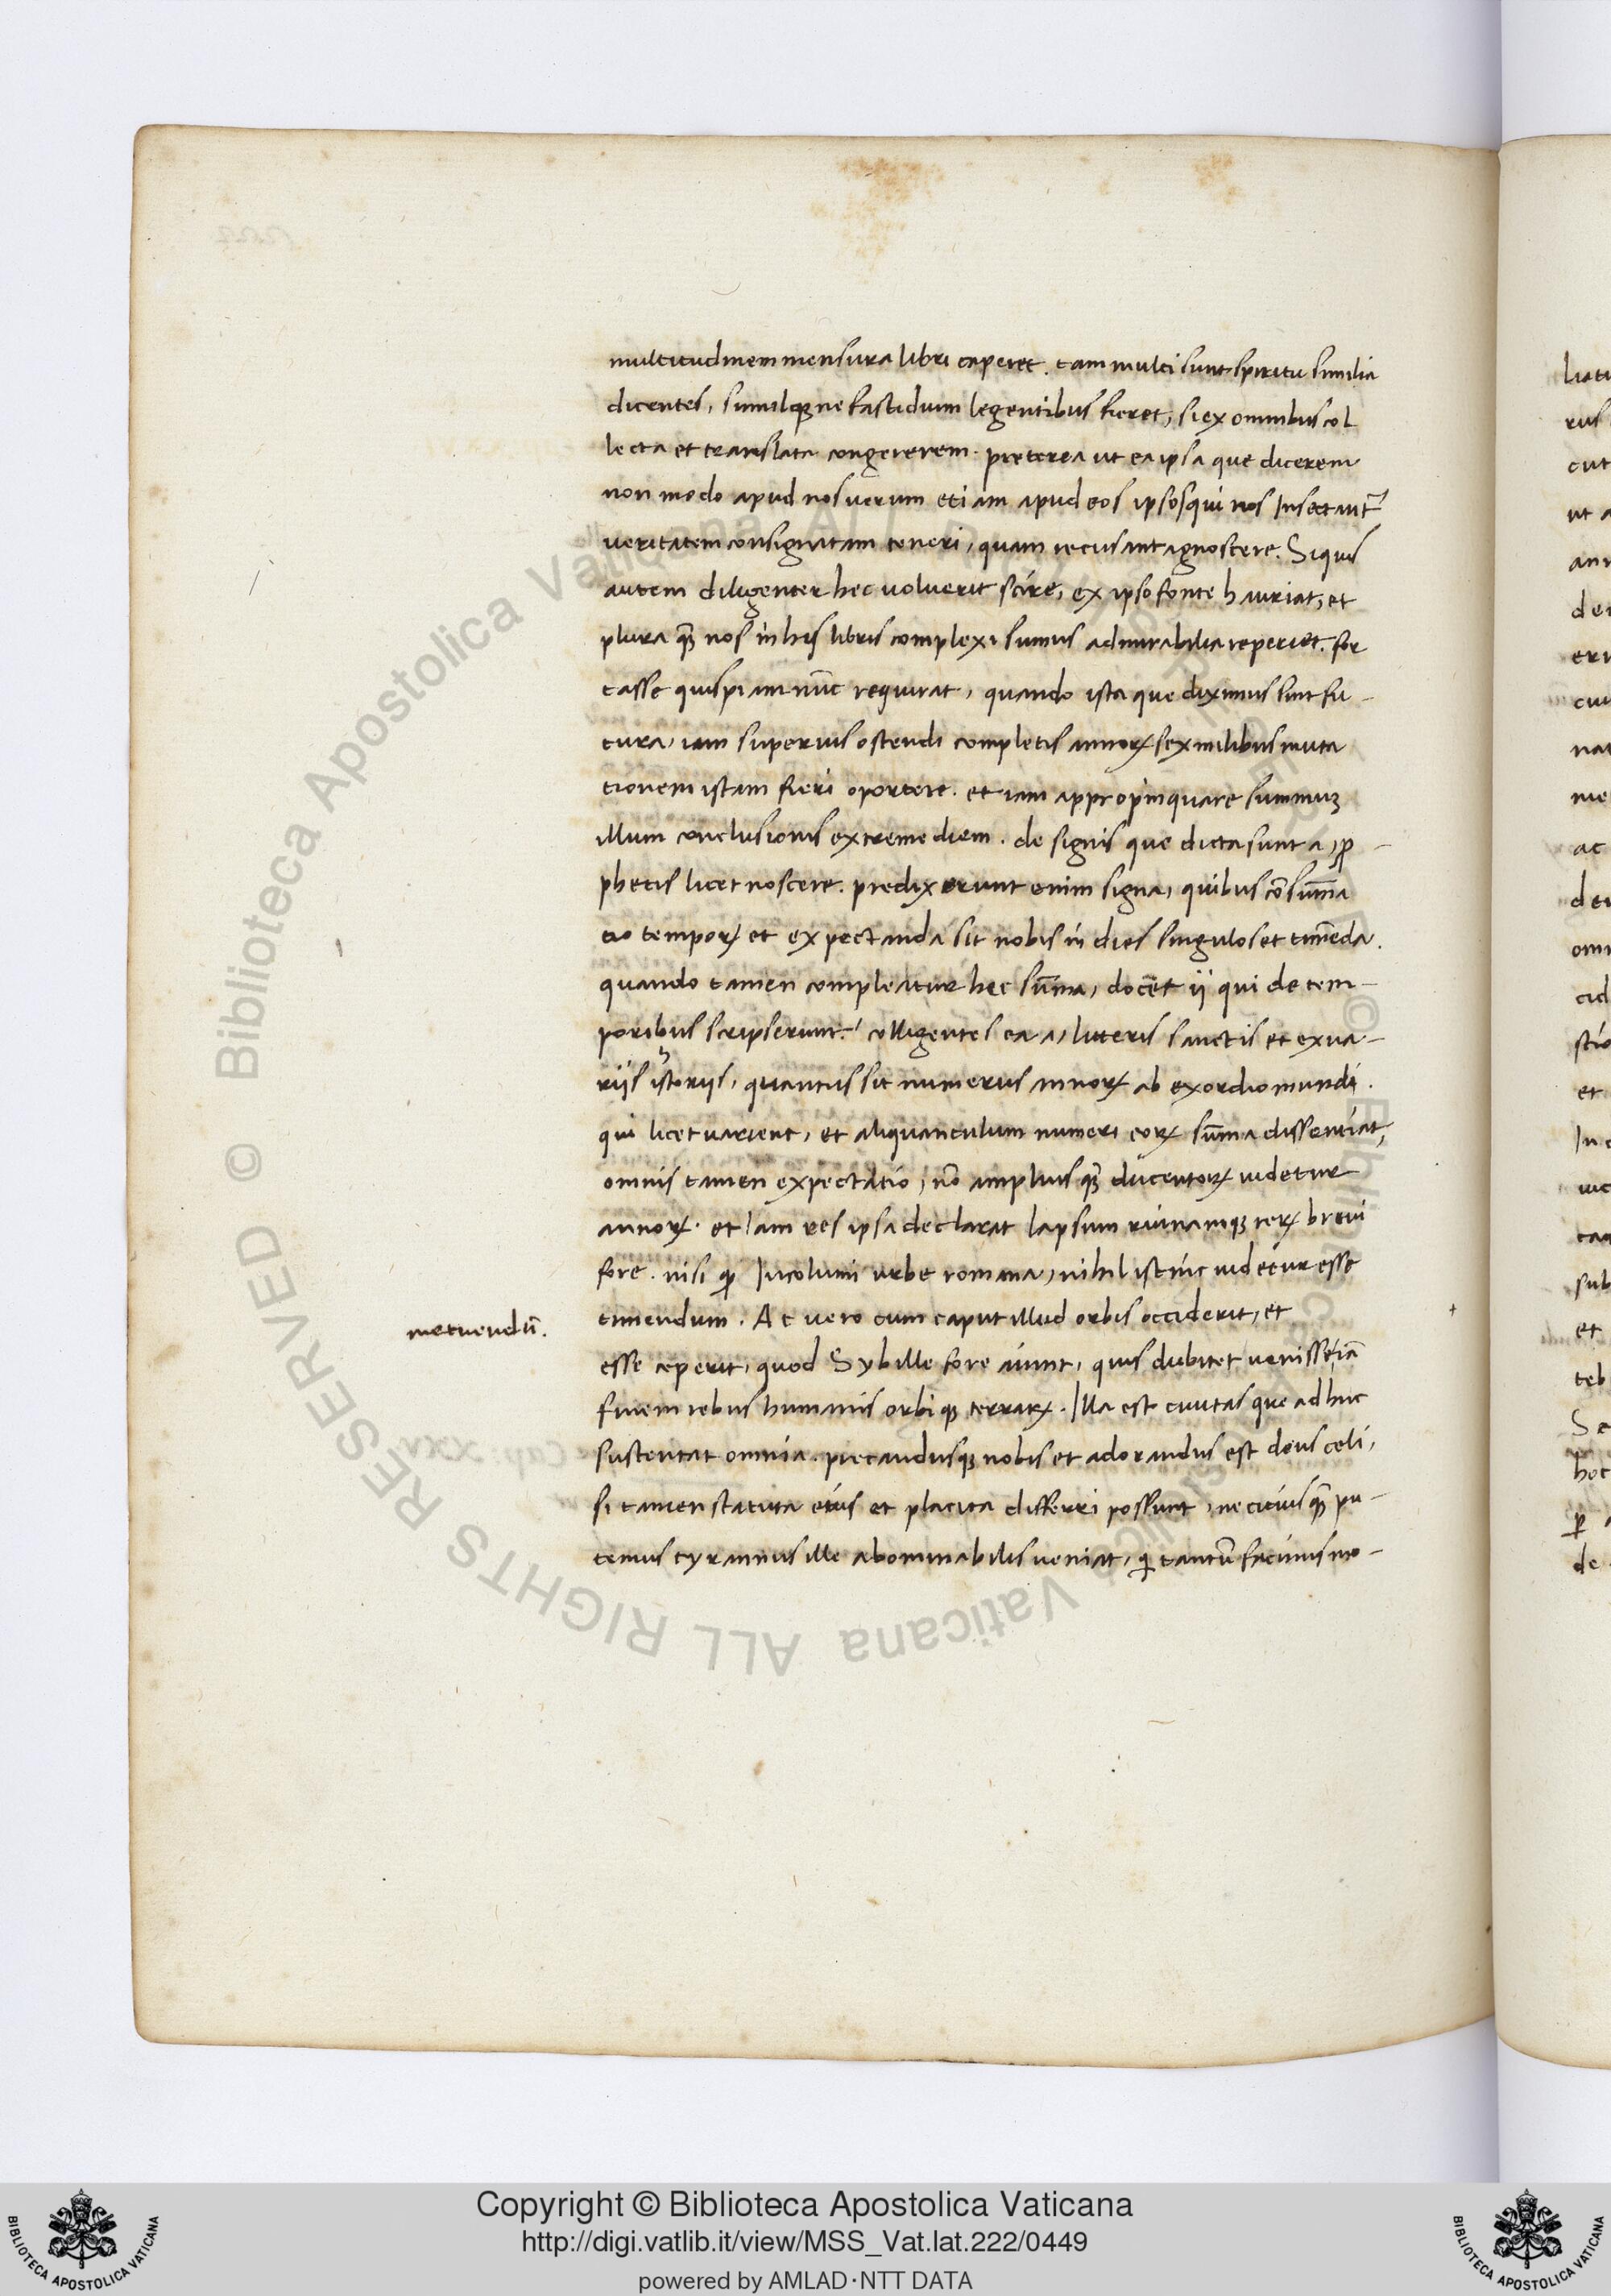 multitudinem mensura libri caperet. tam multi sunt spiritu similia
dicentes, simulq; ne fastidium legentibus fieret, si ex omnibus col
lecta et translata congererem. preterea ut ea ipsa que dicerem
non modo apud nos uerum etiam apud eos ipsos qui nos Insectant᷑
ueritatem consignatam teneri, quam recusant agnoscere. Siquis
autem diligenter hec uoluerit scire, ex ipso fonte hauriat, et
plura q̃ nos in his libris complexi sumus admirabilia reperiet. for
tasse quispiam nũc requirat, quando ista que diximus sint fu-
tura, iam superius ostendi completis annoꝝ sex milibus muta
tionem istam fieri oportere. et iam appropinquare summuꝫ
illum conclusionis extreme diem. de signis que dicta sunt a, ꝓ-
phetis licet noscere. predixerunt enim signa, quibus cõsũma
tio tempoꝝ et expectanda sit nobis in dies singulos et timẽda.
quando tamen compleatur hec sũma, docẽt ij qui de tem-
poribus scripserunt. colligentes ea a, litteris sanctis et ex ua-
rijs hystorijs, quantus sit numerus annoꝝ ab exordio mundi.
qui licet uarient, et aliquantulum numeri eoꝝ sũma dissentiat,
omnis tamen expectatio, nõ amplius q̃ ducentoꝝ uidetur
annoꝝ. et Iam res ipsa declarat lapsum ruinamq; reꝝ breui
fore. nisi ꝙ Incolumi urbe romana, nihil istinc uidetur esse
metuendũ.
timendum. At vero cum caput illud orbis occiderit, et
esse ceperit, quod Sybille fore aiunt, quis dubitet uenisse iã
finem rebus humanis orbiq; terraꝝ. Illa est ciuitas que adhuc
sustentat omnia. precandusq; nobis et adorandus est deus celi,
si tamen statuta eius et placita differri possunt, ne citius q̃ pu-
temus tyrannus ille abominabilis ueniat, qi tantũ facinus mo-
Copyright © Biblioteca Apostolica Vaticana
http://digi.vatlib.it/view/MSS_Vat.lat.222/0449
powered by AMLAD·NTT DATA